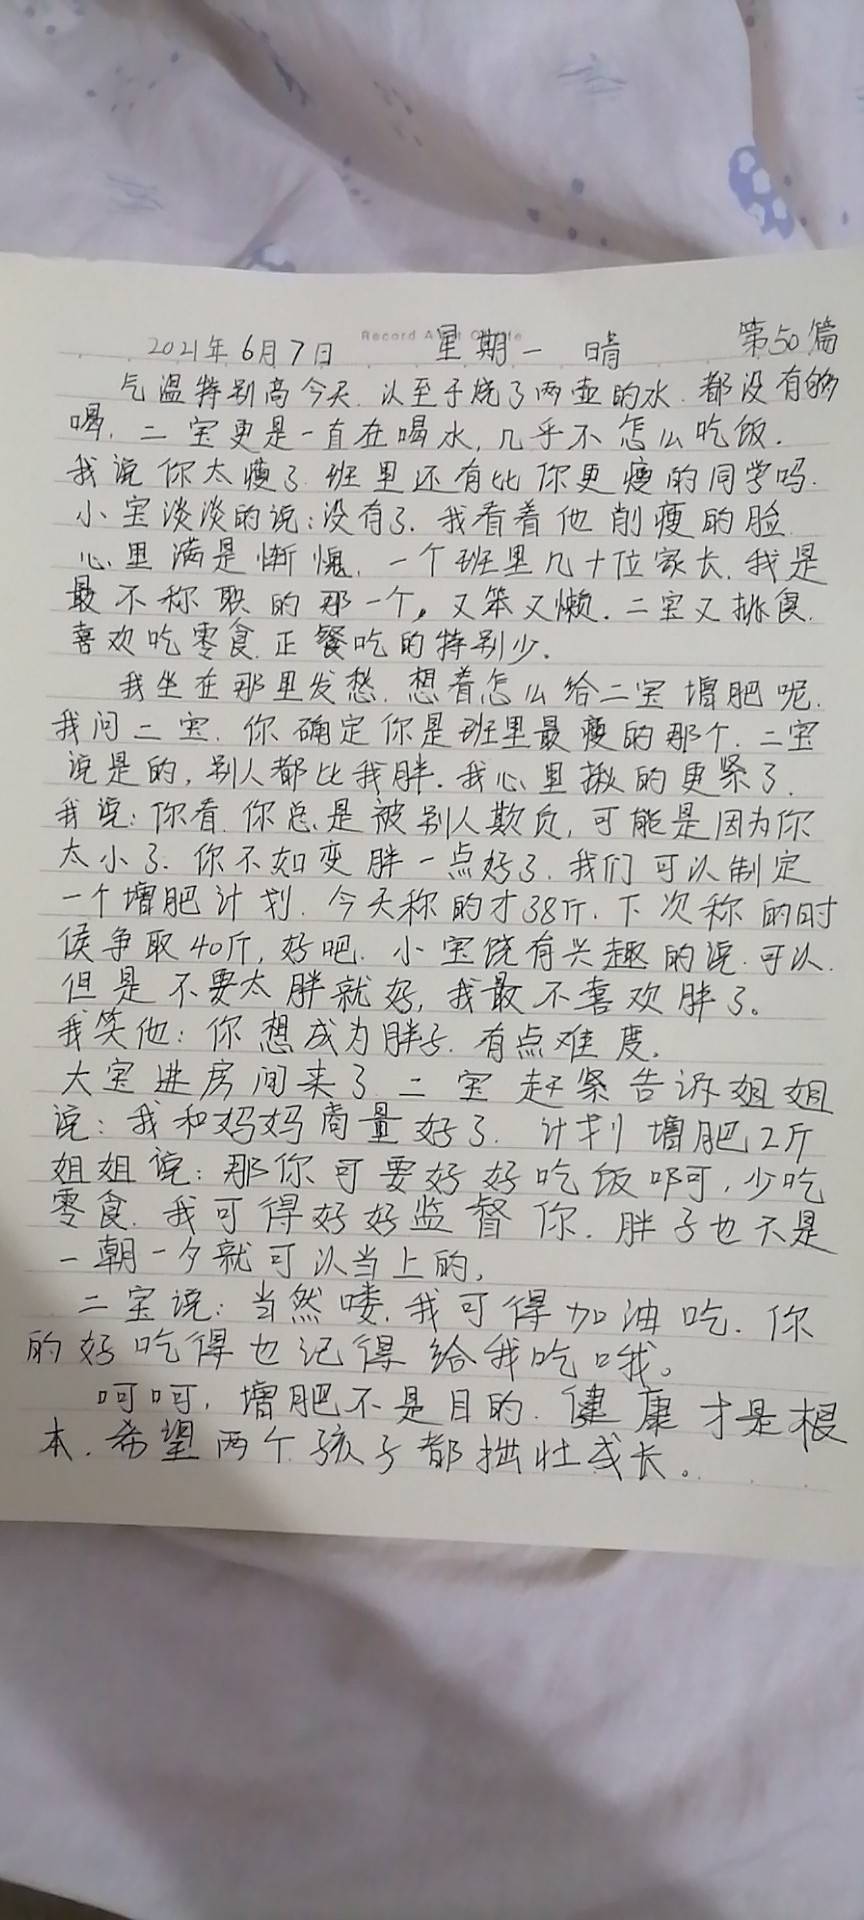 Record A
2021年6月7日 星期一 晴 第50篇
气温特别高今天.以至于烧了两壶的水.都没有够
喝.二宝更是一直在喝水,几乎不怎么吃饭.
我说你太瘦了.班里还有比你更瘦的同学吗.
小宝淡淡的说:没有了.我看着他削瘦的脸.
心里满是惭愧.一个班里几十位家长.我是
最不称职的那一个。又笨又懒.二宝又挑食.
喜欢吃零食.正餐吃的特别少.
我坐在那里发愁.想着怎么给二宝增肥呢.
我问二宝.你确定你是班里最瘦的那个.二宝
说是的,别人都比我胖.我心里揪的更紧了.
我说:你看.你总是被别人欺负,可能是因为你
太小了.你不如变胖一点好了.我们可以制定
一个增肥计划.今天称的才38斤.下次称的时
候争取40斤,好吧.小宝饶有兴趣的说.可以.
但是不要太胖就好,我最不喜欢胖了。
我笑他:你想成为胖子.有点难度.
大宝进房间来了.二宝赶紧告诉姐姐
说:我和妈妈商量好了.计划增肥2斤
姐姐说:那你可要好好吃饭啊.少吃
零食.我可得好好监督你.胖子也不是
一朝一夕就可以当上的,
二宝说:当然喽.我可得加油吃.你
的好吃得也记得给我吃哦。
呵呵,增肥不是目的.健康才是根
本.希望两个孩子都拙壮成长。